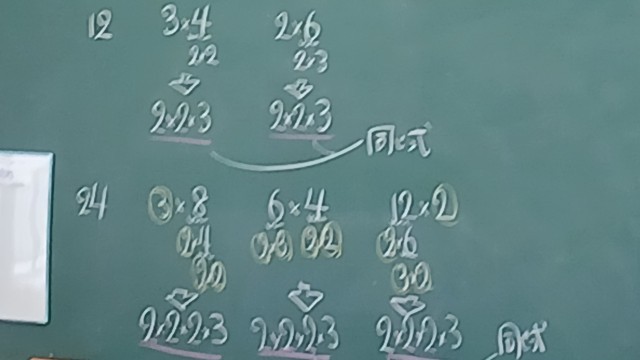 12 3×4 2×6
2×2 2×3
2×2×3 2×2×3
同じ式
24 3×8 6×4 12×2
2×4 2×3 2×2 2×6
2×2 3×2
2×2×2×3 2×2×2×3 2×2×2×3
同じ式